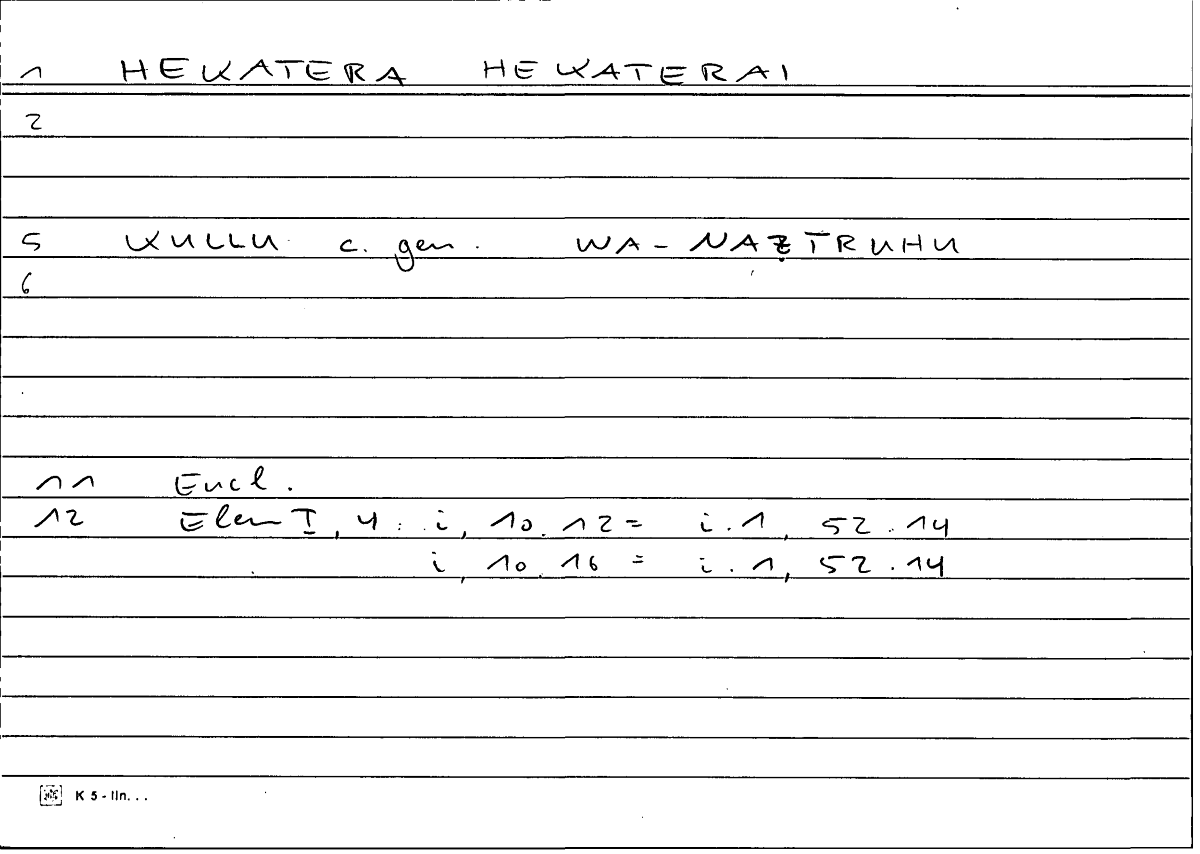 1 HEKATERA HEKATERAI
2
5 KULLU c. gen. WA-NAẒĪRUHU
6
11 Eucl.
12 Elem I, 4 : i, 10.12 = i.1, 52.14
i, 10.16 = i.1, 52.14
K 5 - lin...